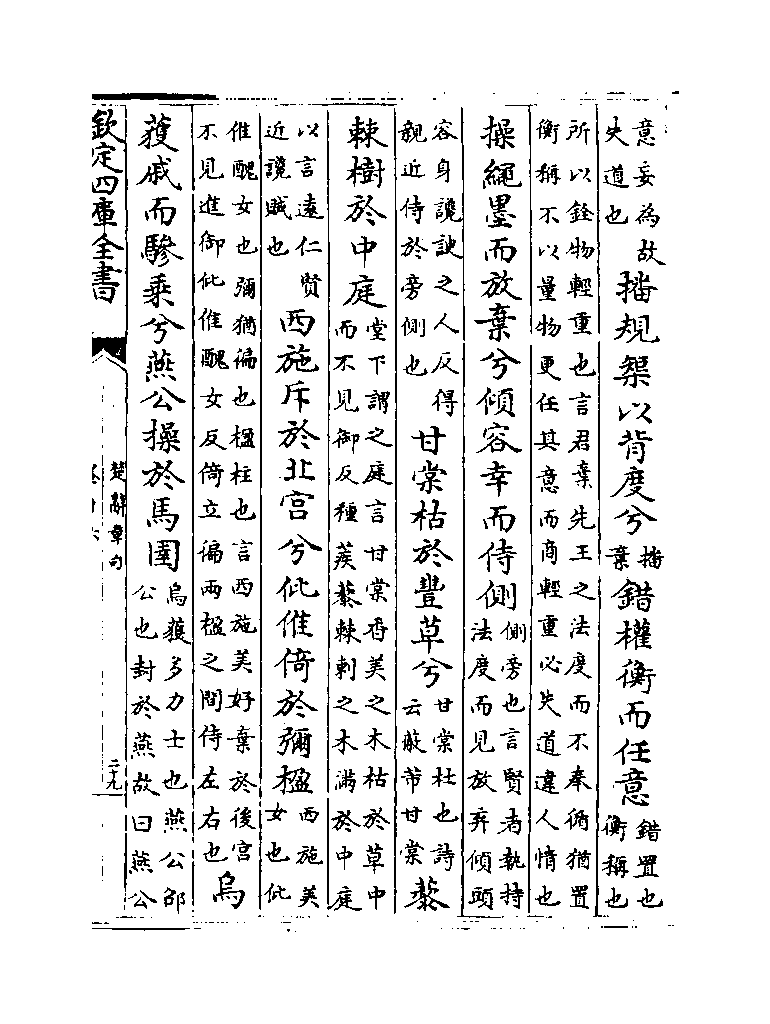 意妄為故失道也播規榘以背度兮播棄錯權衡而任意錯置也衡稱也
所以銓物輕重也言君棄先王之法度而不奉循猶置衡稱不以量物更任其意而商輕重必失道違人情也
操繩墨而放棄兮傾容幸而侍側側旁也言賢者執持法度而見放弃傾頭
容身讒諛之人反得親近侍於旁側也甘棠枯於豐草兮甘棠杜也詩云蔽芾甘棠藜
棘樹於中庭堂下謂之庭言甘棠香美之木枯於草中而不見御反種蒺藜棘刺之木滿於中庭
以言遠仁賢近讒賊也西施斥於北宫兮仳倠倚於彌楹西施美女也仳
倠醜女也彌猶徧也楹柱也言西施美好棄於後宮不見進御仳倠醜女反倚立徧兩楹之間侍左右也烏
獲戚而驂乘兮燕公操於馬圉烏獲多力士也燕公邵公也封於燕故曰燕公
欽定四庫全書
楚辭章句
二十九